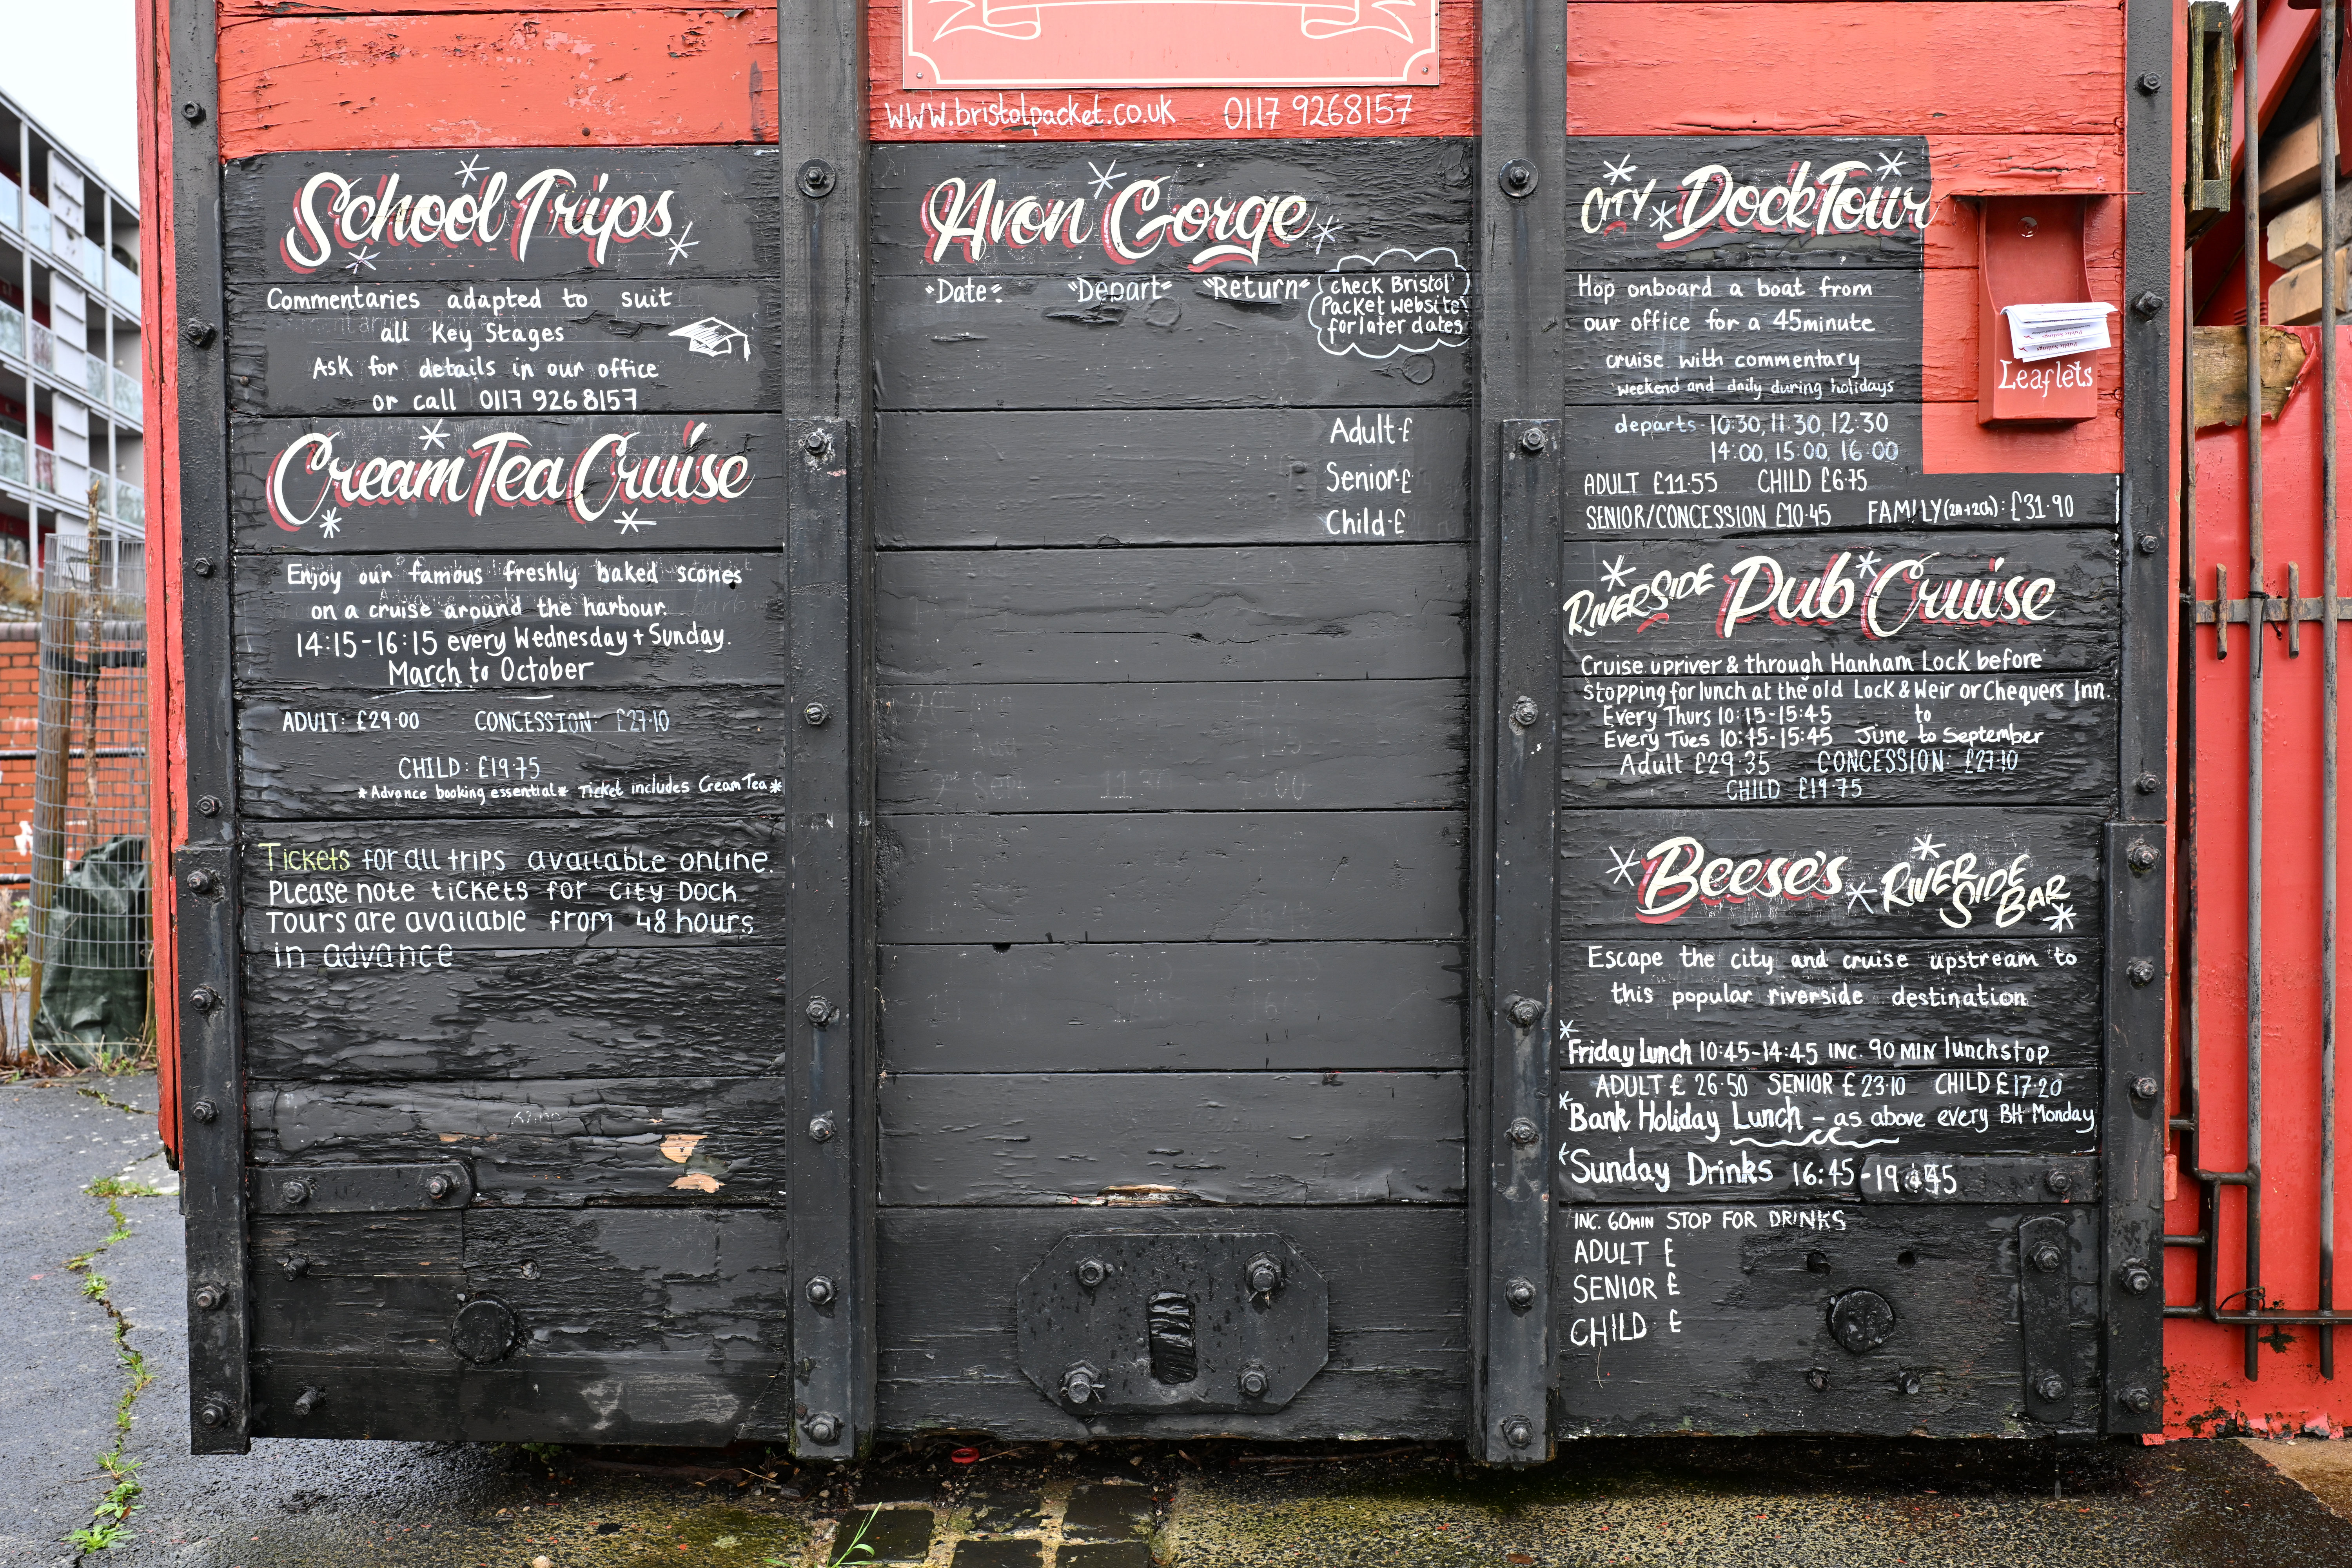 www.bristolpacket.co.uk 0117 9268157
School Trips
Commentaries adapted to suit
all Key Stages
Ask for details in our office
or call 0117 926 8157
Cream Tea Cruise
Enjoy our famous freshly baked scones
on a cruise around the harbour.
14:15-16:15 every Wednesday + Sunday.
March to October
ADULT: £29.00 CONCESSION: £27.10
CHILD: £19.75
*Advance booking essential* Ticket includes Cream Tea*
Tickets for all trips available online.
Please note tickets for City Dock
Tours are available from 48 hours
in advance
Avon Gorge
"Date" "Depart" "Return"
check Bristol
Packet website
for later dates
Adult-£
Senior-£
Child-£
CITY Dock Tour
Hop onboard a boat from
our office for a 45minute
cruise with commentary
weekend and daily during holidays
departs 10:30, 11:30, 12:30
14:00, 15:00, 16:00
ADULT £11.55 CHILD £6.75
SENIOR/CONCESSION £10.45 FAMILY (2A+2Ch): £31.90
Leaflets
RIVERSIDE Pub Cruise
Cruise upriver & through Hanham Lock before
stopping for lunch at the old Lock & Weir or Chequers Inn.
Every Thurs 10:15-15:45 to
Every Tues 10:45-15:45 June to September
Adult £29.35 CONCESSION: £27.10
CHILD £19.75
Beese's RIVERSIDE BAR
Escape the city and cruise upstream to
this popular riverside destination
*Friday Lunch 10:45-14:45 INC. 90 MIN lunchstop
ADULT £ 26.50 SENIOR £ 23.10 CHILD £17.20
*Bank Holiday Lunch - as above every BH Monday
*Sunday Drinks 16:45-19:45
INC. 60MIN STOP FOR DRINKS
ADULT £
SENIOR £
CHILD £